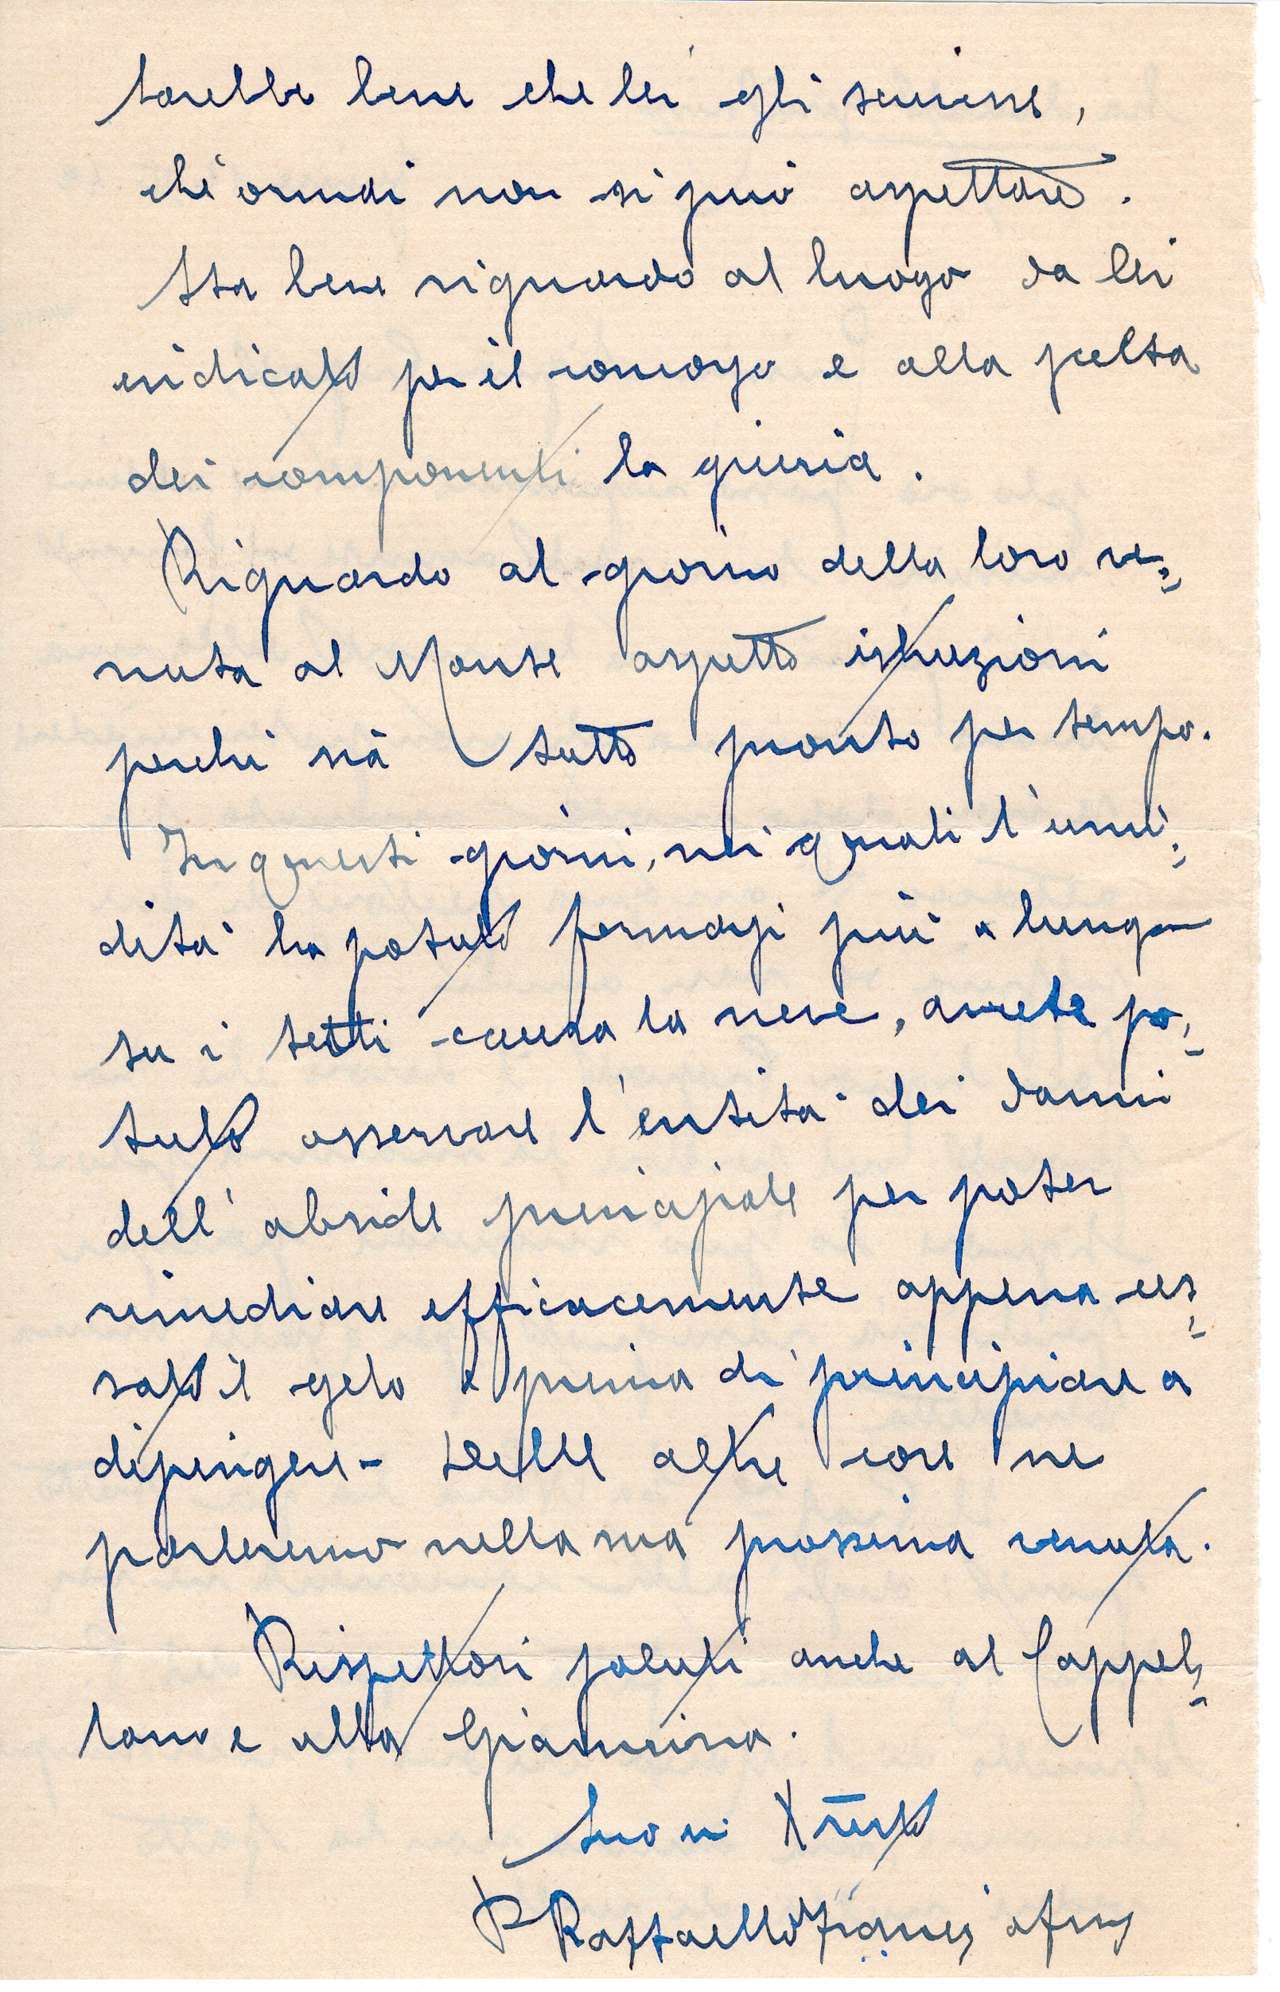 sarebbe bene che lei gli scrivesse,
chè ormai non si può aspettare.
Sta bene riguardo al luogo da lei
indicato per il concorso e alla scelta
dei componenti la giuria.
Riguardo al giorno della loro ve=
nuta al Monte aspetto istruzioni
perché sia tutto pronto per tempo.
In questi giorni, nei quali l'umi=
dità ha potuto fermarsi più a lungo
su i tetti causa la neve, avrete po=
tuto osservare l'entità dei danni
dell'abside principale per poter
rimediare efficacemente appena ces=
sato il gelo e prima di principiare a
dipingere - Delle altre cose ne
parleremo nella sua prossima venuta.
Rispettosi saluti anche al Cappel=
lano e alla Giannina.
Suo in Xresto
P Raffaello Franci ofm